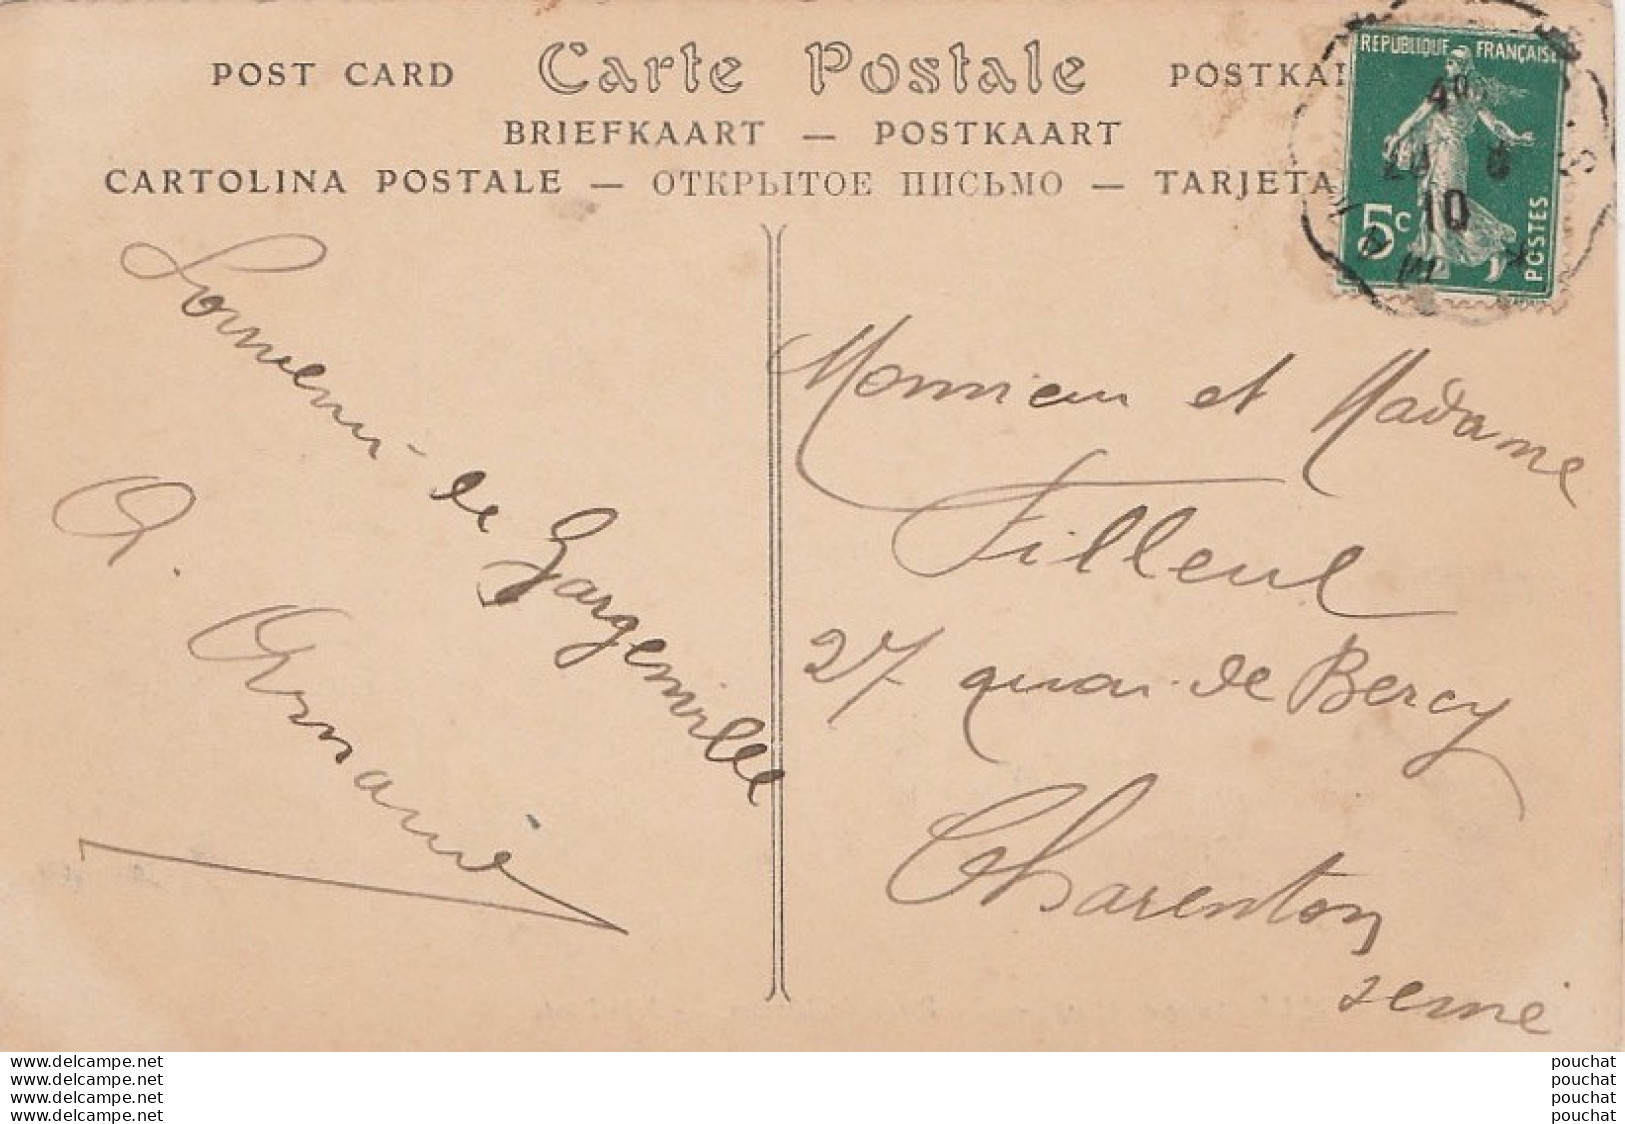 POST CARD Carte Postale POSTKAI
BRIEFKAART — POSTKAART
CARTOLINA POSTALE — ОТКРЫТОЕ ПИСЬМО — TARJETA
REPUBLIQUE FRANÇAISE
5c
POSTES
10
Souvenir de Gargenville
A.
Monsieur et Madame
Filleul
27 quai de Bercy
Charenton
Seine
www.delcampe.net
www.delcampe.net
www.delcampe.net
www.delcampe.net
pouchat
pouchat
pouchat
pouchat